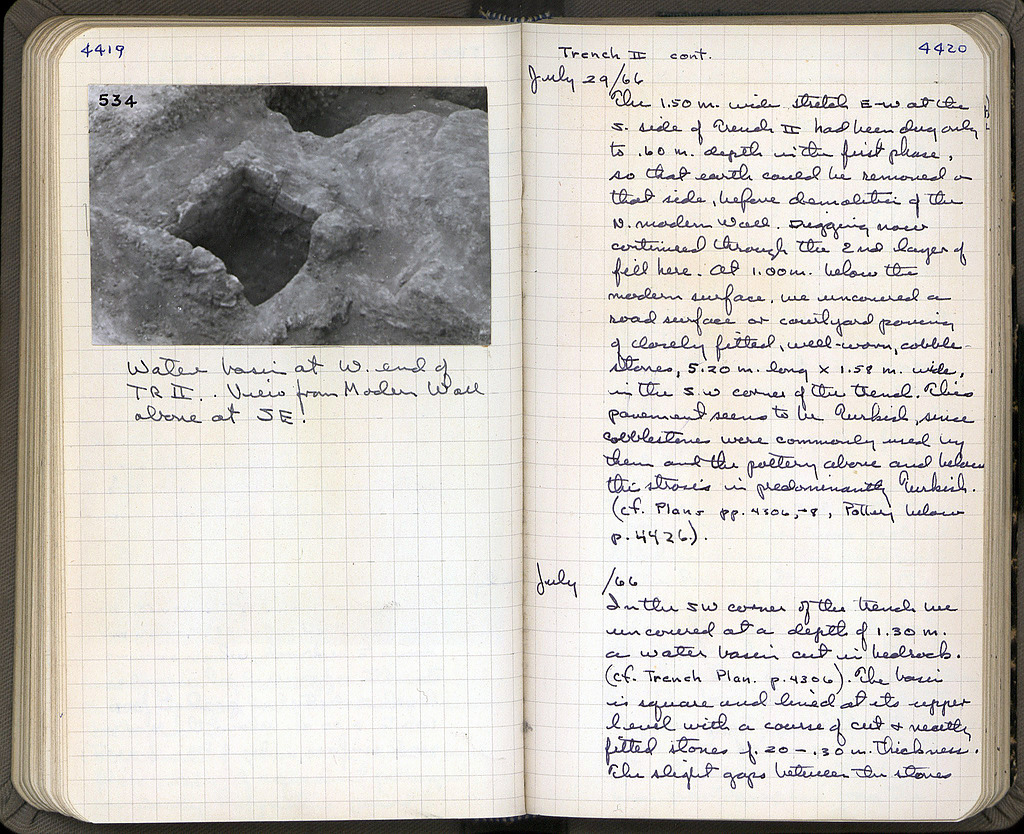 4419
534
Water basin at W. end of
TR II. . View from Modern Wall
above at SE.
4420
Trench II cont.
July 29/66
The 1.50 m. wide stretch E-W at the
S. side of Trench II had been dug only
to .60 m. depth in the first phase,
so that earth could be removed on
that side, before demolition of the
N. modern Wall. Digging now
continued through the 2nd layer of
fill here. At 1.00 m. below the
modern surface, we uncovered a
road surface or courtyard paving
of closely fitted, well-worn, cobble-
stones, 5.20 m. long x 1.58 m. wide,
in the S.W corner of the trench. This
pavement seems to be Turkish, since
cobblestones were commonly used by
them and the pottery above and below
the strosis is predominantly Turkish.
(cf. Plans pp. 4306,-8, Pottery below
p. 4426).
July /66
In the SW corner of the trench we
uncovered at a depth of 1.30 m.
a water basin cut in bedrock.
(cf. Trench Plan. p. 4306). The basin
is square and lined at its upper
level with a course of cut & neatly
fitted stones of .20 - .30 m. thickness.
The slight gaps between the stones